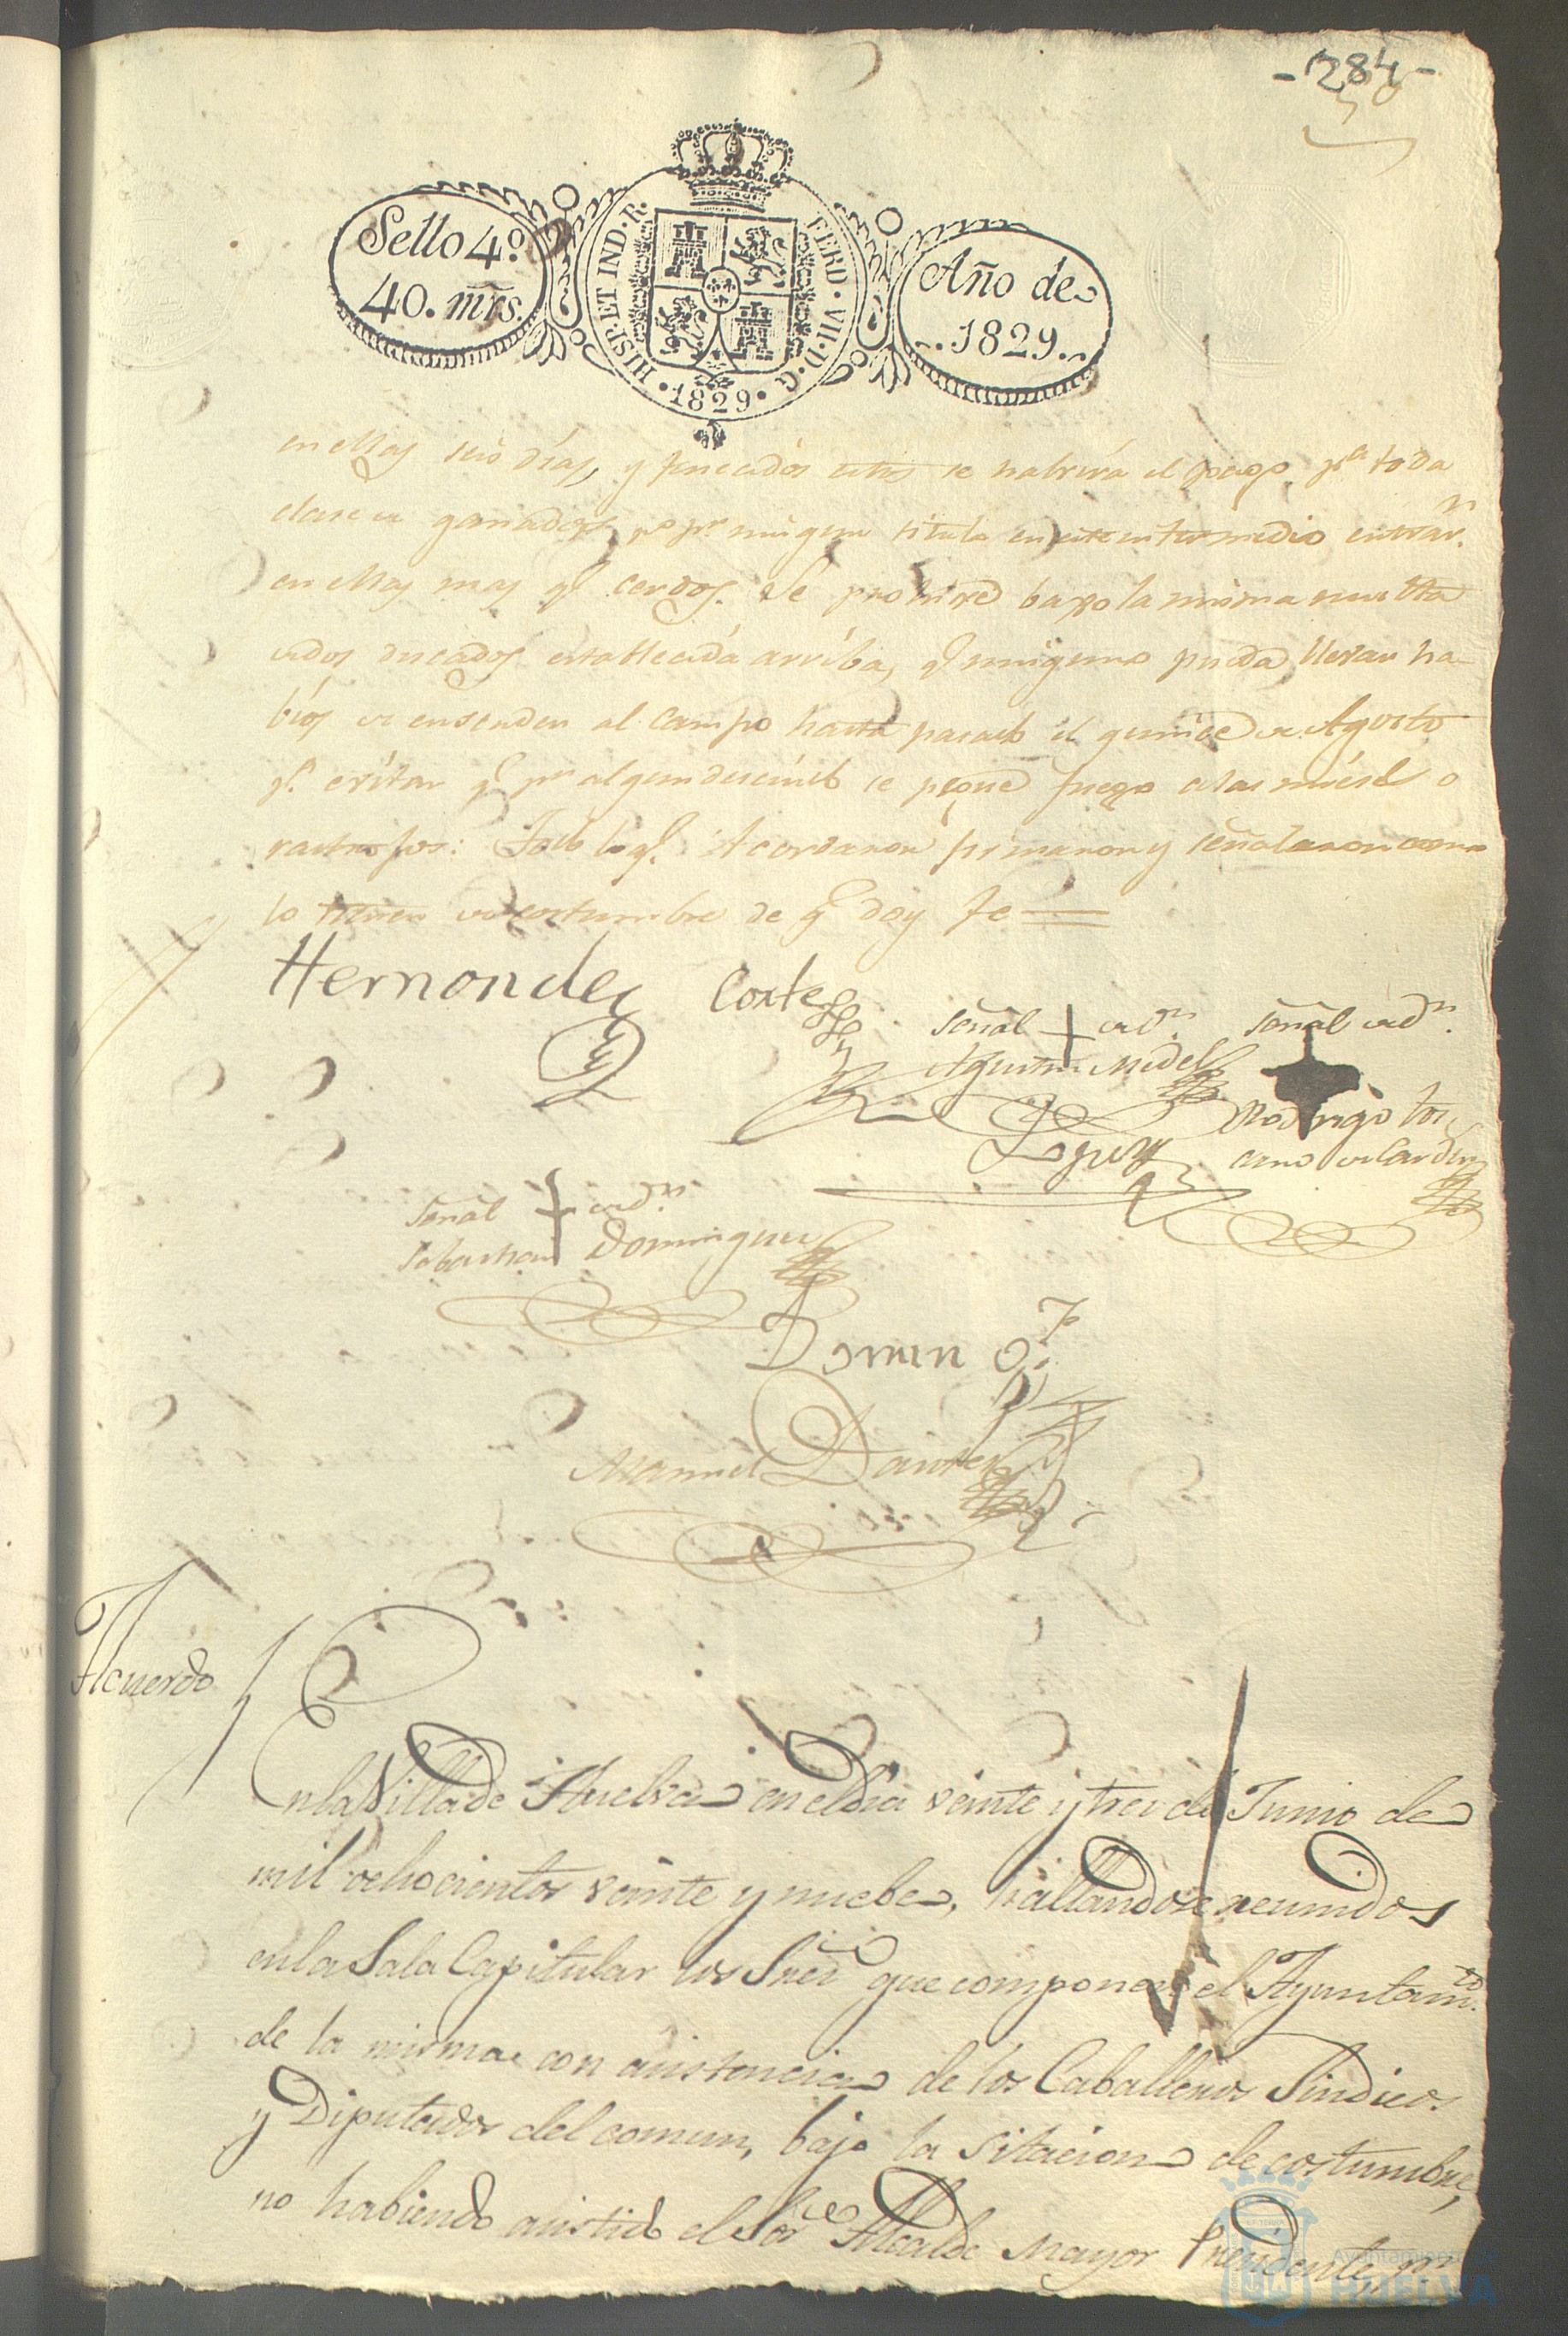 -284-
Sello 4º
40. mrs.
HISP. ET IND. R.
FERD. VII. D. G.
1829
Año de
1829.
en ellos seis días, y pasados estos se habrirá el pago pª toda
clase de ganados, pº pr ningun titulo en este intermedio entrarn
en ellos mas qe cerdos. Se prohive bajo la misma multa
de dos ducados establecida arriba, qe ninguno pueda llevar ha-
bíos de ensender al campo hasta pasado el quince de Agosto
pª evitar qe pr algun descuido se pegue fuego a las o
rastrojos: Todo lo qe Acordaron firmaron y señalaron como
lo tienen de costumbre de qe doy fe
Hernandez Cortes señal de Dn señal de Dn
Agustin Medel Rodrigo tos
Lopez cano
señal de Dn
Sebastian Dominguez
Domin
Manuel
Acuerdo
En la Villa de Huelva en el dia veinte y tres de Junio de
mil ochocientos veinte y nuebe, hallandose reunidos
en la Sala Capitular los Sres que componen el Ayuntamto
de la misma con asistencia de los Caballeros Sindicos
y Diputados del comun, bajo la sitacion de costumbre,
no habiendo asistido el Sor Alcalde Mayor Presidente, pr
Ayuntamiento de
HUELVA